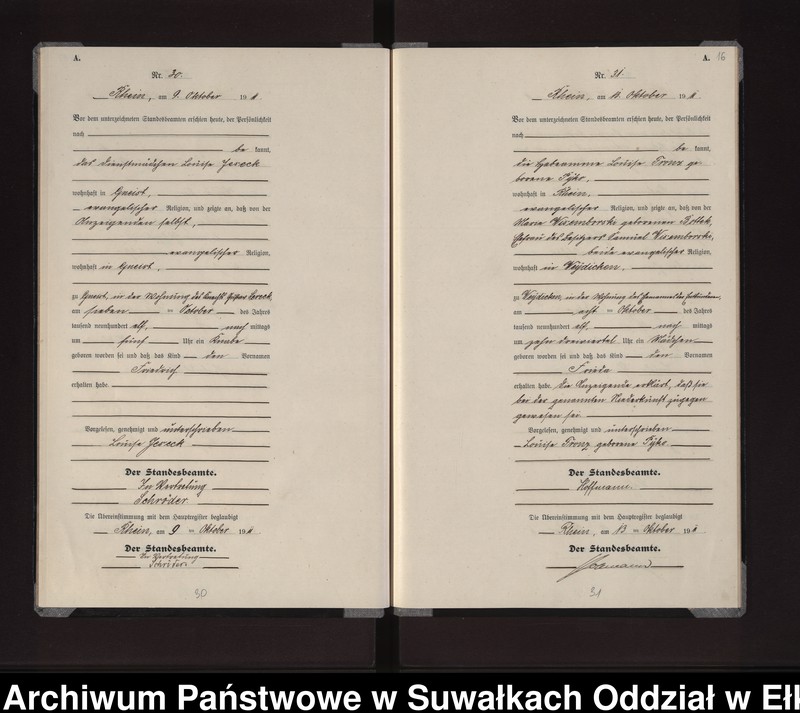 A.
Nr. 30.
Rhein, am 9. Oktober 1911
Vor dem unterzeichneten Standesbeamten erschien heute, der Persönlichkeit
nach
be kannt,
das Dienstmädchen Louise Jereck
wohnhaft in Gneist,
evangelischer Religion, und zeigte an, daß von der
Anzeigenden selbst,
evangelischer Religion,
wohnhaft in Gneist,
zu Gneist, in der Wohnung des Jereck,
am sieben ten Oktober des Jahres
tausend neunhundert elf, nach mittags
um fünf Uhr ein Knabe
geboren worden sei und daß das Kind den Vornamen
Friedrich
erhalten habe.
Vorgelesen, genehmigt und unterschrieben
Louise Jereck
Der Standesbeamte.
In Vertretung
Schröder
Die Übereinstimmung mit dem Hauptregister beglaubigt
Rhein, am 9 ten Oktober 1911
Der Standesbeamte.
In Vertretung
Schröder
30
A. 16
Nr. 31.
Rhein, am Oktober 1911
Vor dem unterzeichneten Standesbeamten erschien heute, der Persönlichkeit
nach
be kannt,
die Hebeamme Louise ge
borene
wohnhaft in Rhein,
evangelischer Religion, und zeigte an, daß von der
Marie geborenen
Ehefrau des Besitzers Samuel
beide evangelischer Religion,
wohnhaft in Weydicken,
zu Weydicken, in der Wohnung des
am acht ten Oktober des Jahres
tausend neunhundert elf, nach mittags
um zehn dreiviertel Uhr ein Mädchen
geboren worden sei und daß das Kind den Vornamen
Frieda
erhalten habe. Die Anzeigende erklärt, daß sie
bei der genannten Niederkunft zugegen
gewesen sei
Vorgelesen, genehmigt und unterschrieben
Louise geborene
Der Standesbeamte.
Hoffmann.
Die Übereinstimmung mit dem Hauptregister beglaubigt
Rhein, am 13 ten Oktober 1911
Der Standesbeamte.
31
Archiwum Państwowe w Suwałkach Oddział w Ełk